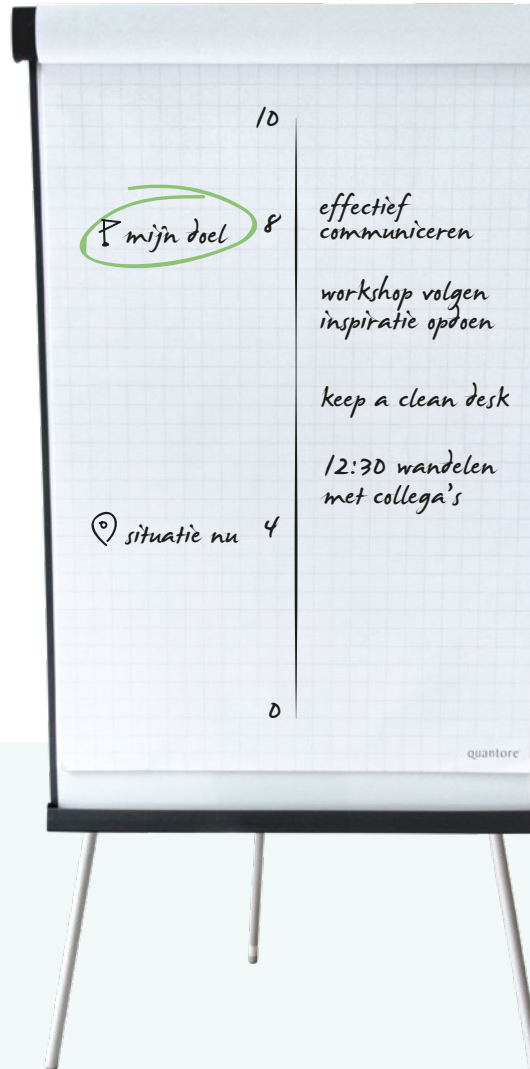 10
mijn doel 8
effectief
communiceren
workshop volgen
inspiratie opdoen
keep a clean desk
12:30 wandelen
met collega's
situatie nu 4
0
quantore